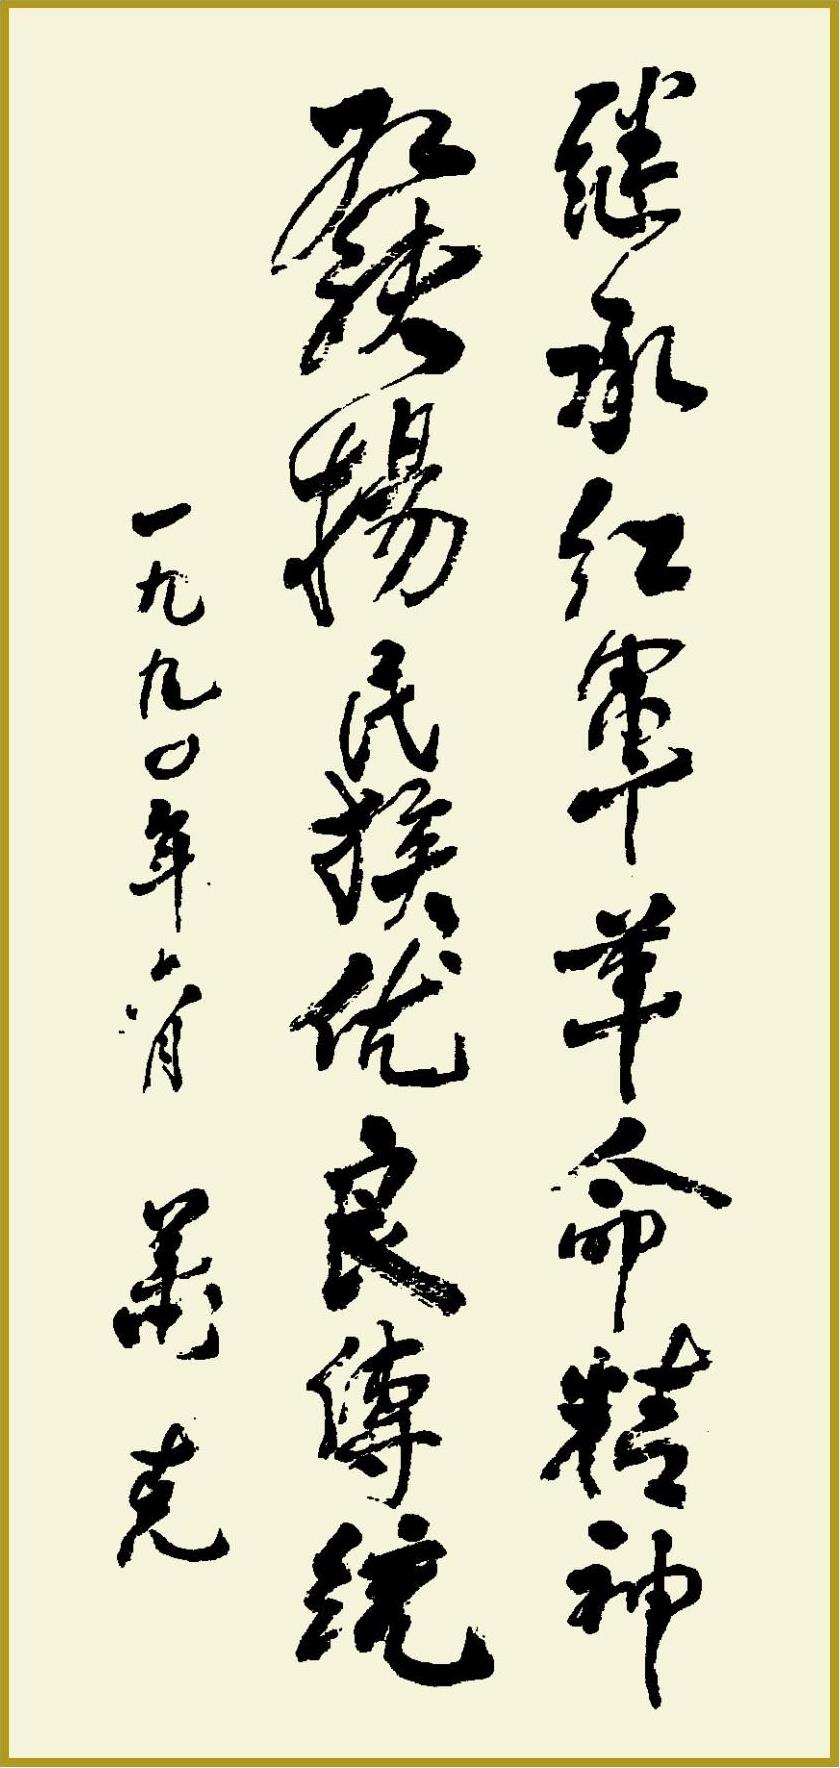 继承红军革命精神
發揚民族优良傳统
一九九〇年六月 萧克